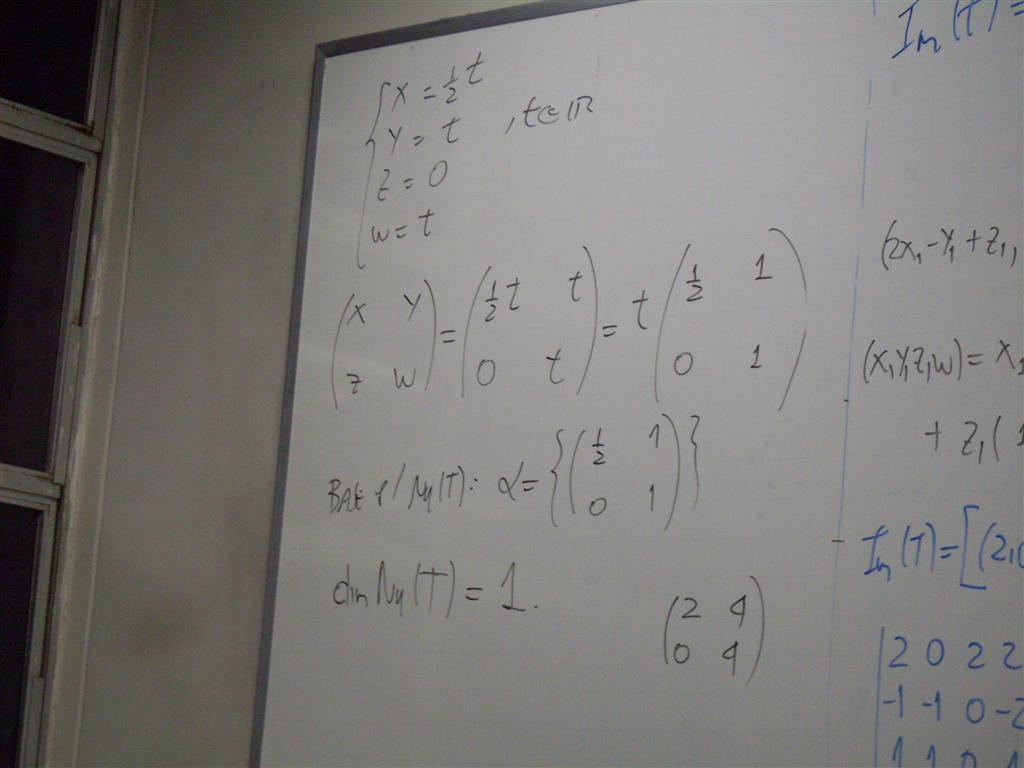 x = 1/2 t
y = t , t ∈ ℝ
z = 0
w = t
(x y; z w) = (1/2 t t; 0 t) = t (1/2 1; 0 1)
BASE P/ Nu(T): α = {(1/2 1; 0 1)}
dim Nu(T) = 1.
(2 4; 0 4)
Im(T) =
(2x₁ - y₁ + z₁,
(x,y,z,w) = x₁
+ z₁(1
Im(T) = [(2,0
2 0 2 2
-1 -1 0 -2